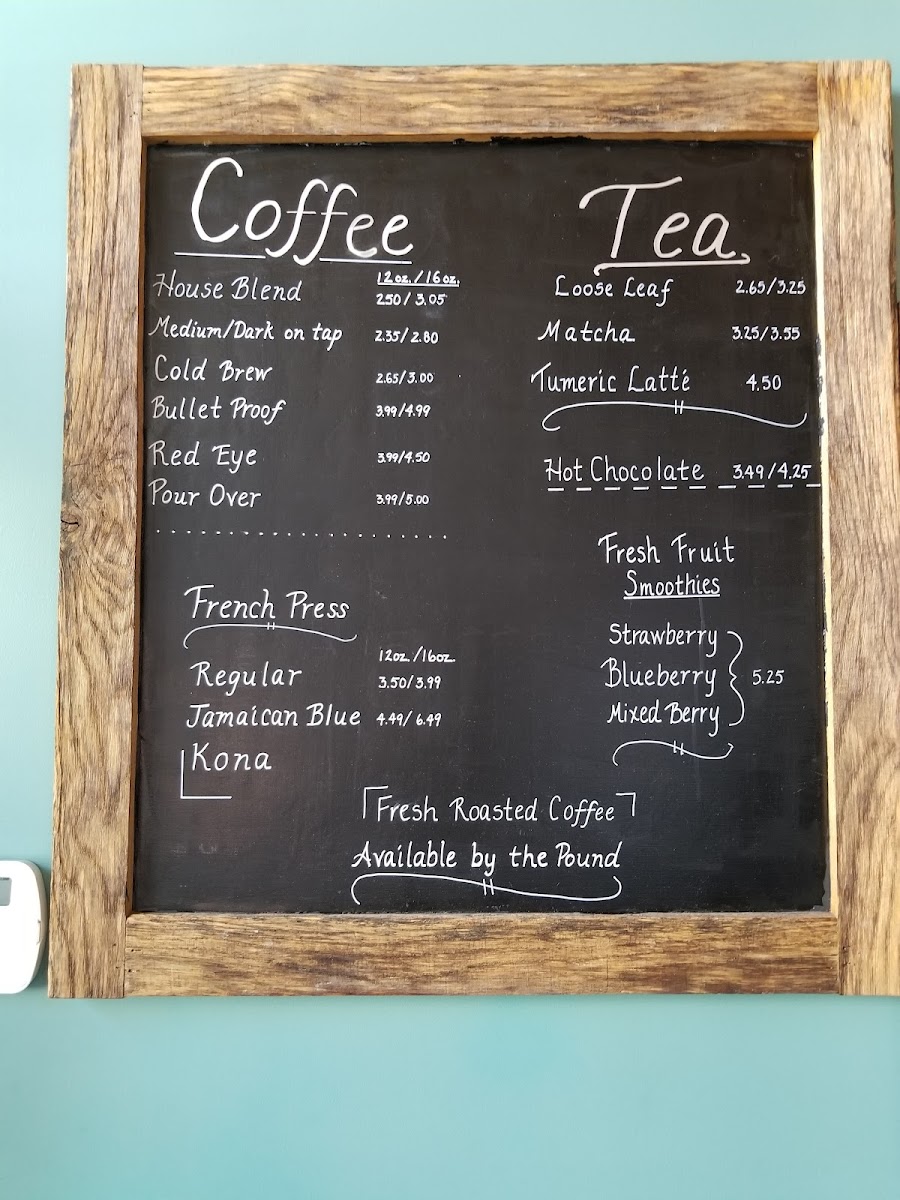 Coffee
12oz. / 16oz.
House Blend 250 / 3.05
Medium/Dark on tap 2.35/2.80
Cold Brew 2.65/3.00
Bullet Proof 3.99/4.99
Red Eye 3.99/4.50
Pour Over 3.99/5.00
French Press
12oz. /16oz.
Regular 3.50/3.99
Jamaican Blue 4.49/6.49
Kona
Tea
Loose Leaf 2.65/3.25
Matcha 3.25/3.55
Tumeric Latté 4.50
Hot Chocolate 3.49/4.25
Fresh Fruit
Smoothies
Strawberry
Blueberry 5.25
Mixed Berry
Fresh Roasted Coffee
Available by the Pound